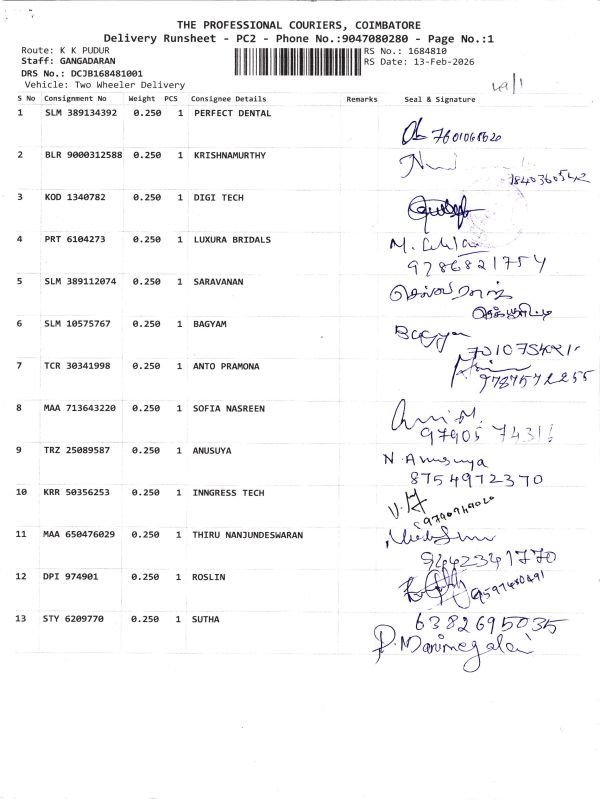 THE PROFESSIONAL COURIERS, COIMBATORE
Delivery Runsheet - PC2 - Phone No.:9047080280 - Page No.:1
Route: K K PUDUR RS No.: 1684810
Staff: GANGADARAN RS Date: 13-Feb-2026
DRS No.: DCJB168481001
Vehicle: Two Wheeler Delivery
S No Consignment No Weight PCS Consignee Details Remarks Seal & Signature
1 SLM 389134392 0.250 1 PERFECT DENTAL
2 BLR 9000312588 0.250 1 KRISHNAMURTHY
3 KOD 1340782 0.250 1 DIGI TECH
4 PRT 6104273 0.250 1 LUXURA BRIDALS
9786821754
5 SLM 389112074 0.250 1 SARAVANAN
6 SLM 10575767 0.250 1 BAGYAM Bagya
7 TCR 30341998 0.250 1 ANTO PRAMONA
9787572255
8 MAA 713643220 0.250 1 SOFIA NASREEN
97905 74316
9 TRZ 25089587 0.250 1 ANUSUYA N. Anusuya
8754972370
10 KRR 50356253 0.250 1 INNGRESS TECH
11 MAA 650476029 0.250 1 THIRU NANJUNDESWARAN
9442341770
12 DPI 974901 0.250 1 ROSLIN
13 STY 6209770 0.250 1 SUTHA 6382695035
P. Manimegalai